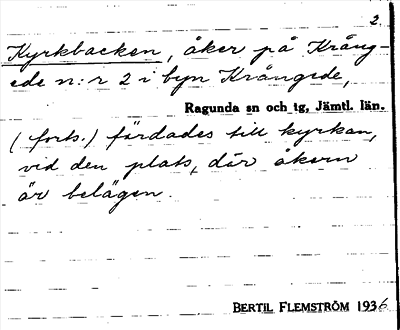 2.
Kyrkbacken, åker på Krång-
ede n:r 2 i byn Krångede,
Ragunda sn och tg, Jämtl. län.
(forts.) färdades till kyrkan,
vid den plats, där åkern
är belägen.
BERTIL FLEMSTRÖM 1936